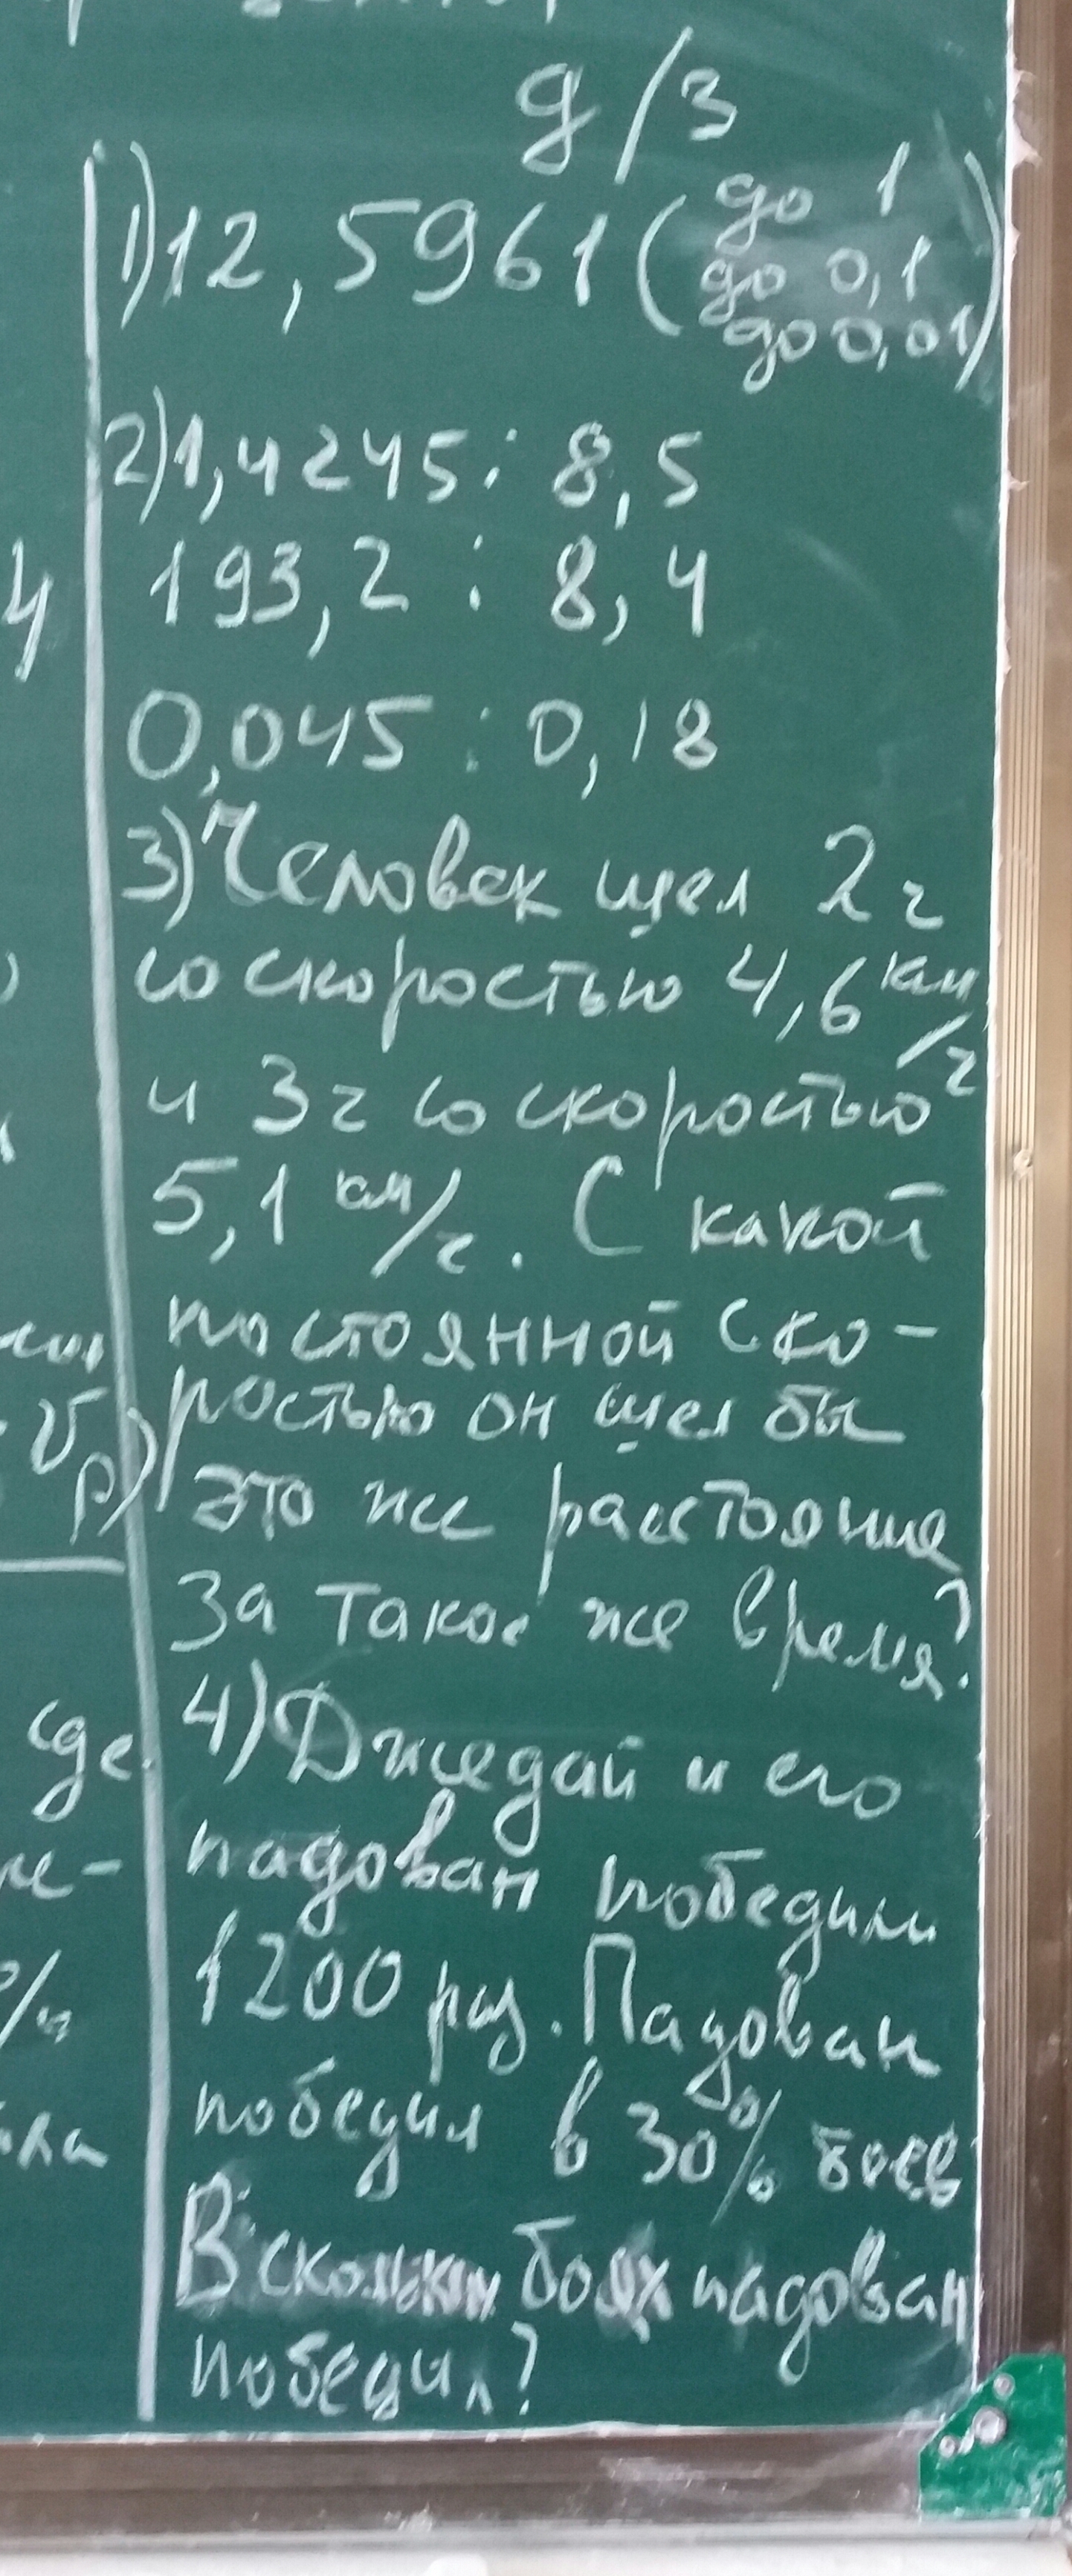 д/з
1) 12,5961 (до 1
до 0,1
до 0,01)
2) 1,4245 : 8,5
193,2 : 8,4
0,045 : 0,18
3) Человек шел 2 ч
со скоростью 4,6 км/ч
и 3 ч со скоростью
5,1 км/ч. С какой
постоянной ско-
ростью он шел бы
это же расстояние
за такое же время?
4) Джедай и его
падован победили
1200 раз. Падован
победил в 30% боев
В скольких боях падован
победил?